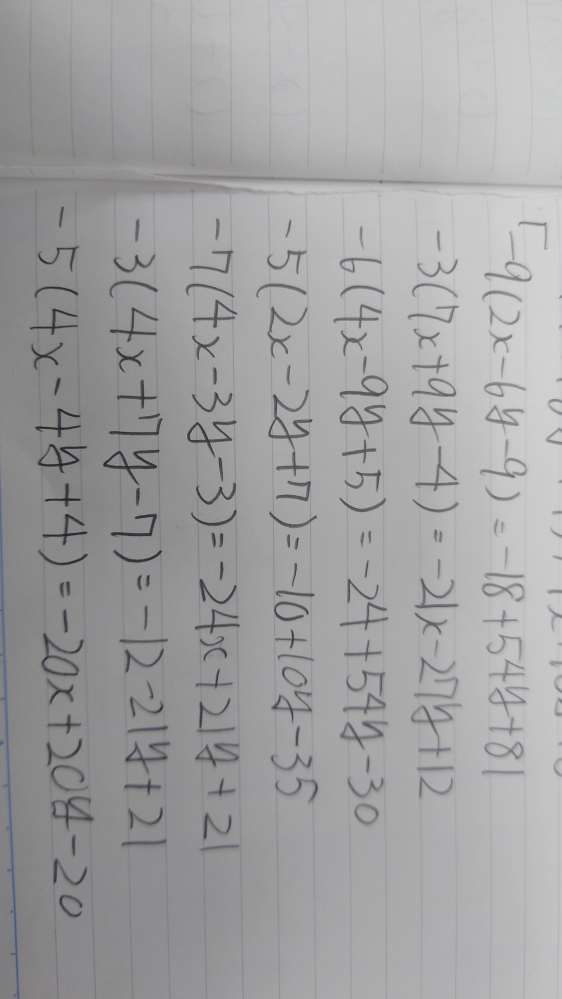 -9(2x-6y-9)=-18+54y+81
-3(7x+9y-4)=-21x-27y+12
-6(4x-9y+5)=-24+54y-30
-5(2x-2y+7)=-10+10y-35
-7(4x-3y-3)=-24x+21y+21
-3(4x+7y-7)=-12-21y+21
-5(4x-4y+4)=-20x+20y-20